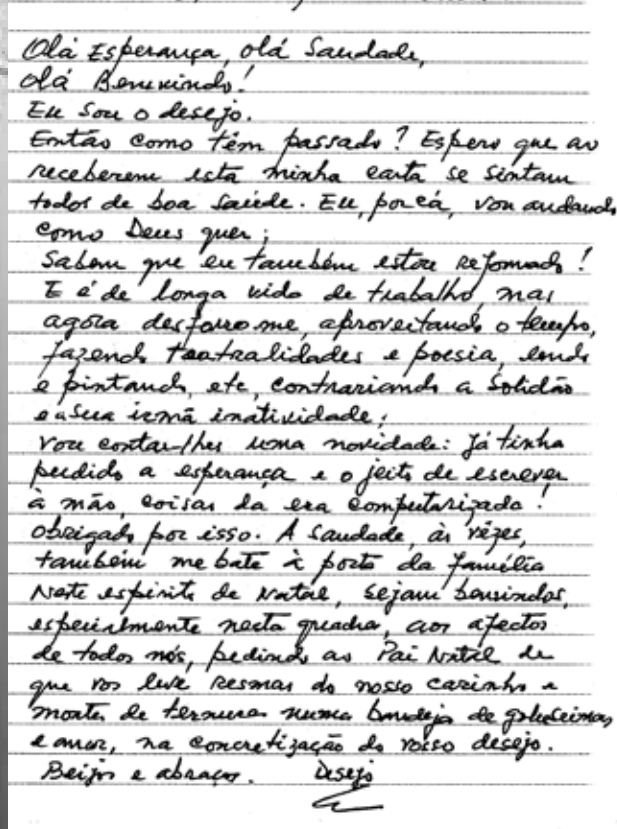 Olá Esperança, olá Saudade,
olá Benvindo!
Eu sou o desejo.
Então como têm passado? Espero que ao
receberem esta minha carta se sintam
todos de boa saúde. Eu, por cá, vou andando
como Deus quer;
Sabem que eu também estou reformado!
E é de longa vida de trabalho, mas
agora desforro-me, aproveitando o tempo,
fazendo teatralidades e poesia, lendo
e pintando, etc, contrariando a Solidão
e a sua irmã inatividade;
Vou contar-lhes uma novidade: Já tinha
perdido a esperança e o jeito de escrever
à mão, coisas da era computarizada!
Obrigado por isso. A saudade, às vezes,
também me bate à porta da família
Neste espírito de Natal, sejam bemvindos,
especialmente nesta quadra, aos afectos
de todos nós, pedindo ao Pai Natal de
que vos leve resmas do nosso carinho e
montes de ternura numa bandeja de guloseimas
e amor, na concretização do vosso desejo.
Beijos e abraços. Desejo